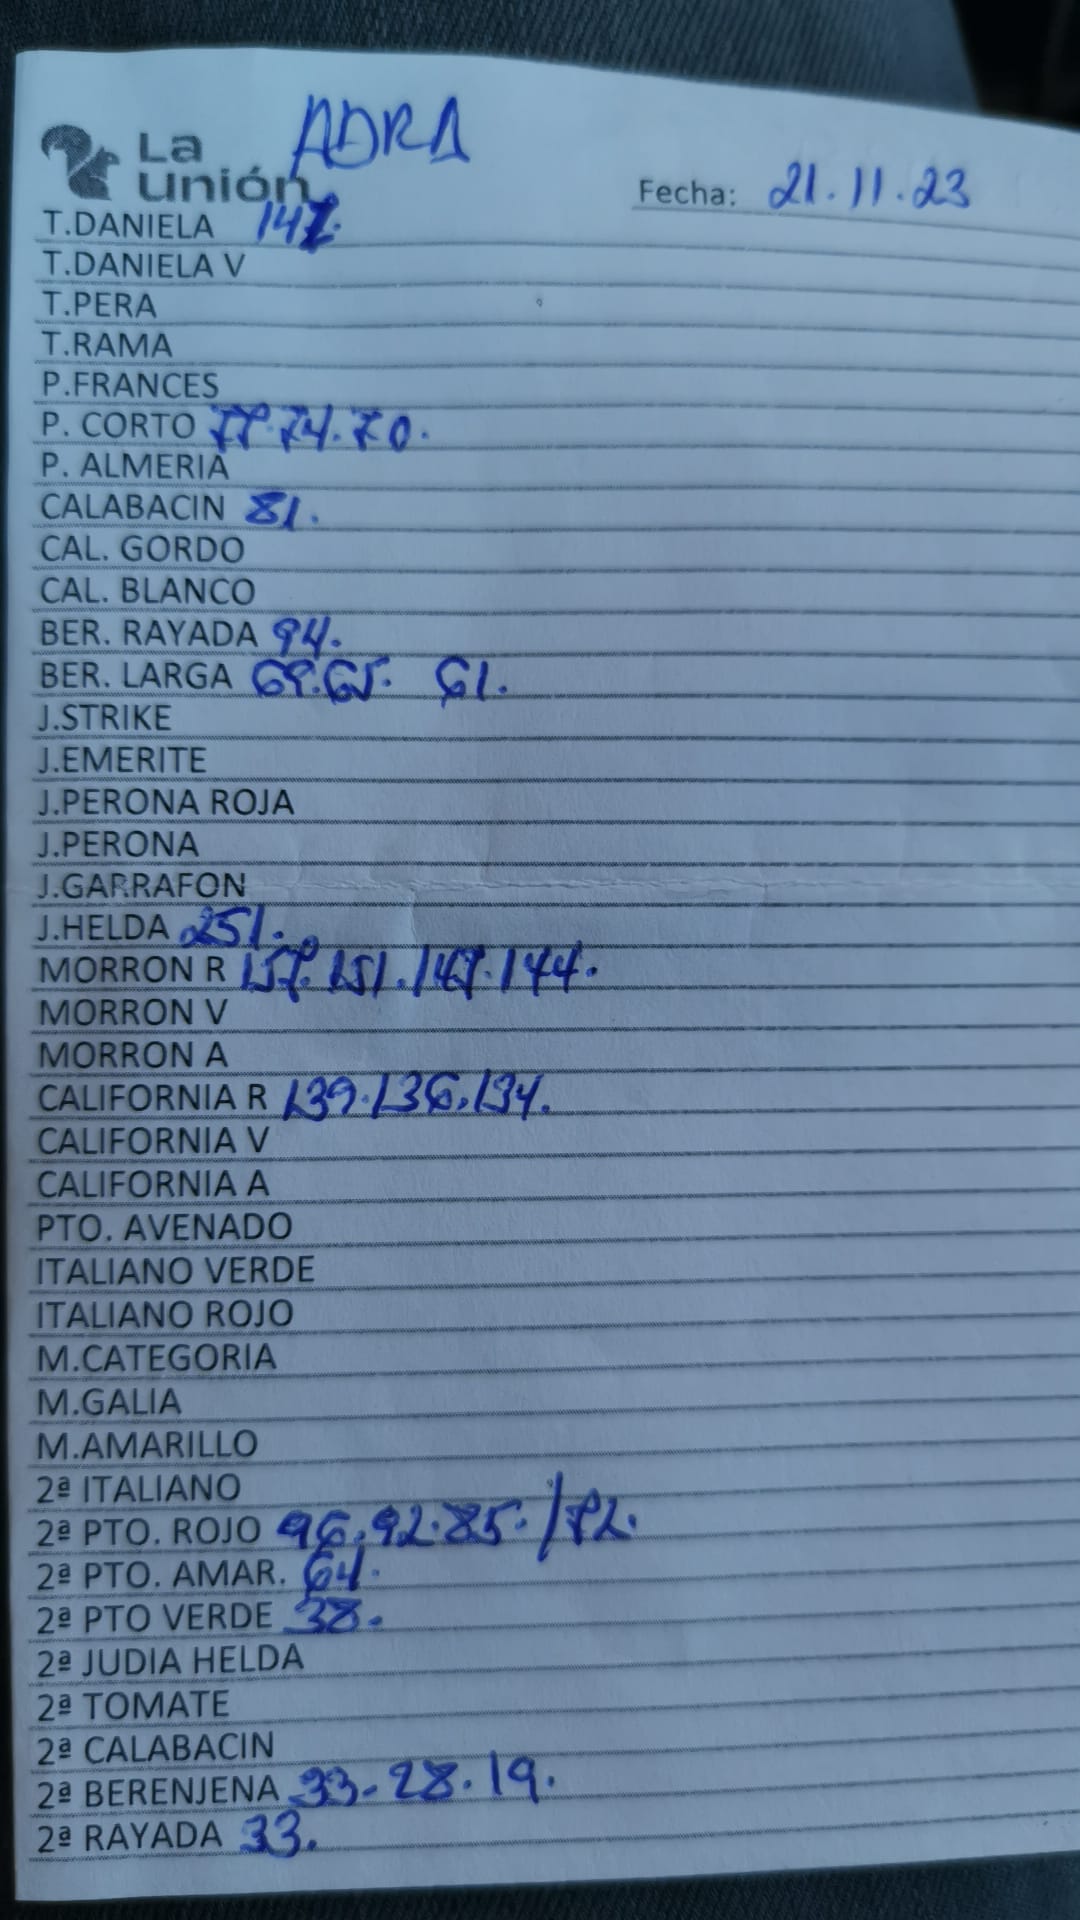 La
unión
ADRA
Fecha: 21.11.23
T.DANIELA
T.DANIELA V
T.PERA
T.RAMA
P.FRANCES
P. CORTO 77.74.70.
P. ALMERIA
CALABACIN 81.
CAL. GORDO
CAL. BLANCO
BER. RAYADA 94.
BER. LARGA 69.65. 61.
J.STRIKE
J.EMERITE
J.PERONA ROJA
J.PERONA
J.GARRAFON
J.HELDA 251.
MORRON R 157.151.147.144.
MORRON V
MORRON A
CALIFORNIA R 139.136.134.
CALIFORNIA V
CALIFORNIA A
PTO. AVENADO
ITALIANO VERDE
ITALIANO ROJO
M.CATEGORIA
M.GALIA
M.AMARILLO
2ª ITALIANO
2ª PTO. ROJO 96.92.85./72.
2ª PTO. AMAR. 64.
2ª PTO VERDE 38.
2ª JUDIA HELDA
2ª TOMATE
2ª CALABACIN
2ª BERENJENA 33-28.19.
2ª RAYADA 33.